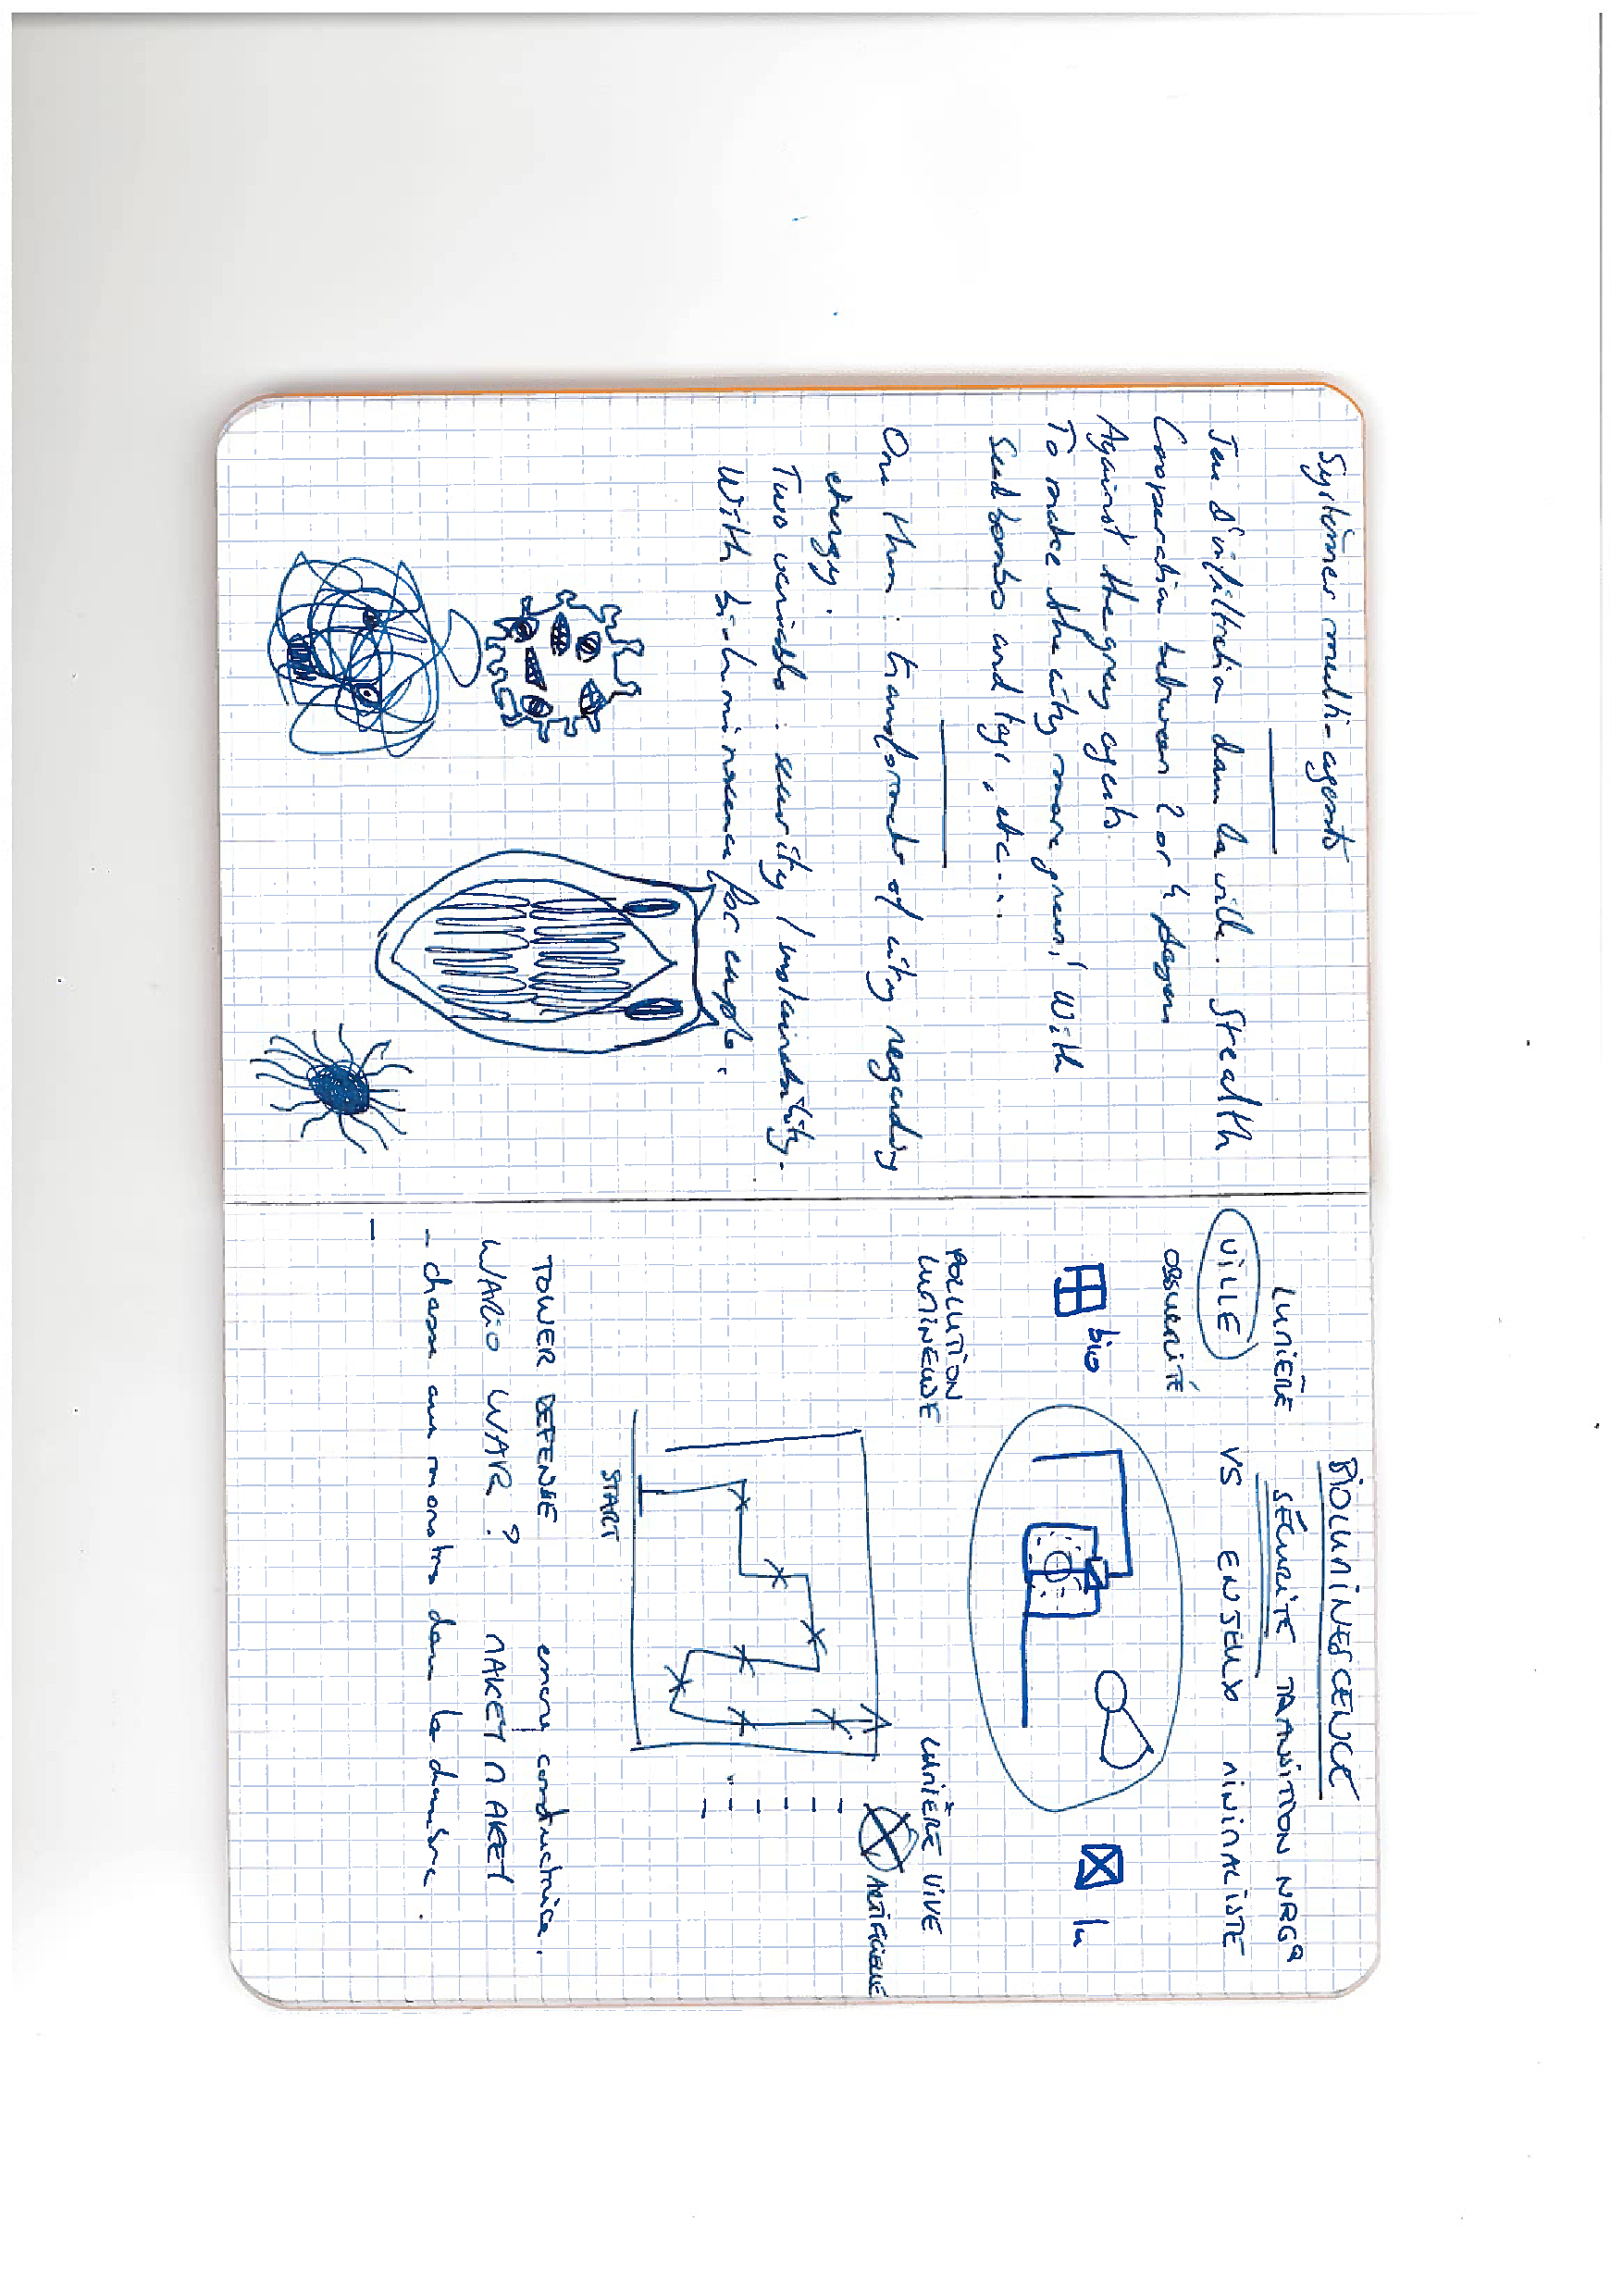 Systèmes multi-agents
Jeu d'infiltration dans la ville. Stealth
Cooperation between 2 or 4 
Against the grey agents.
To make the city more green! With
Seedbombs and tags, etc...
One then : transformat of city regarding
energy.
Two variable : security / sustainability.
With bioluminescence for exple.
BIOLUMINESCENCE
LUMIÈRE SÉCURITÉ TRANSITION NRGQ
VILLE VS ENJEUX MINIMALISTE
OBSCURITÉ
bio lu
POLLUTION
LUMINEUSE
LUMIÈRE VIVE
ARTIFICIELLE
START
TOWER DEFENSE encore constructrice.
WARIO WAR ? MAKEY MAKEY
- chasse aux monstres dans la chambre.
-